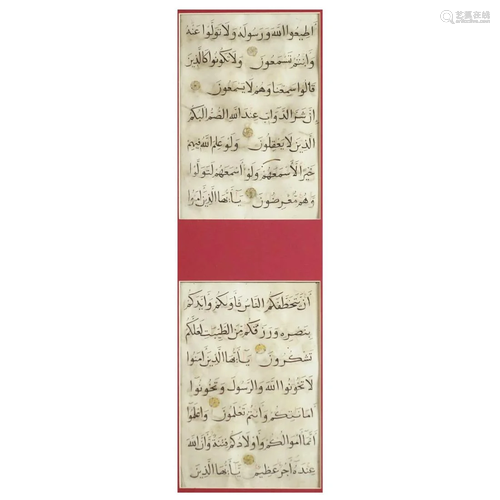 艺狐在线
artfoxlive.com
اطيعوا الله ورسوله ولا تولوا عنه
وانتم تسمعون ولا تكونوا كالذين
قالوا سمعنا وهم لا يسمعون
ان شر الدواب عند الله الصم البكم
الذين لا يعقلون ولو علم الله فيهم
خيرا لاسمعهم ولو اسمعهم لتولوا
وهم معرضون يايها الذين امنوا
ان يتخطفكم الناس فاويكم وايدكم
بنصره ورزقكم من الطيبت لعلكم
تشكرون يايها الذين امنوا
لا تخونوا الله والرسول وتخونوا
امانتكم وانتم تعلمون واعلموا
انما اموالكم واولادكم فتنة وان الله
عنده اجر عظيم يايها الذين